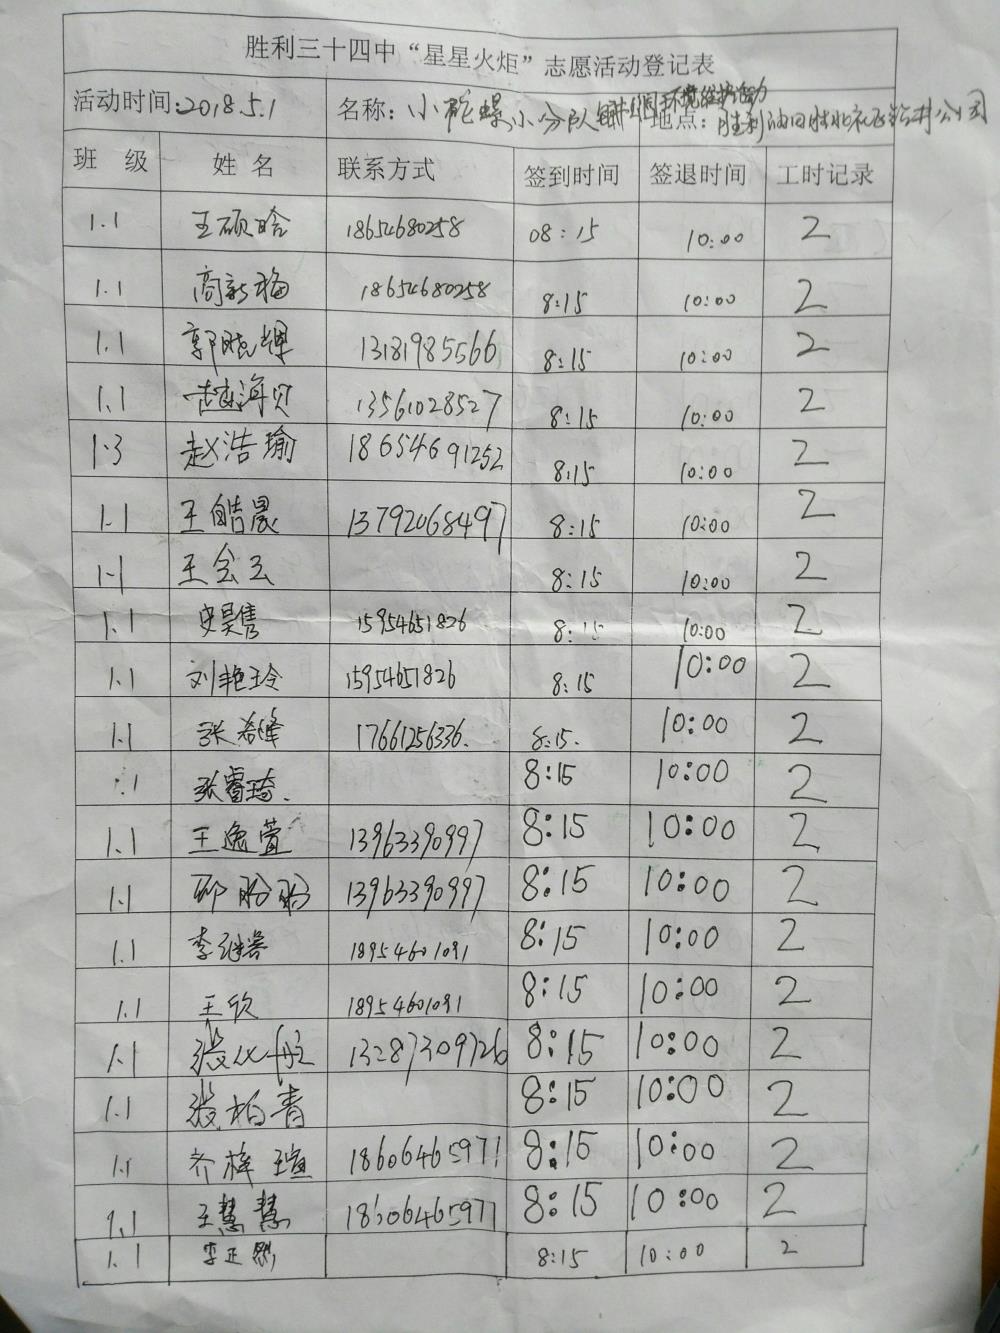 胜利三十四中“星星火炬”志愿活动登记表
活动时间:2018.5.1 名称：小陀螺小分队 环境维护活动 地点：胜利油田胜北 公司
班 级 姓 名 联系方式 签到时间 签退时间 工时记录
1.1 王硕晗 18654680258 08:15 10:00 2
1.1 高新梅 18654680258 8:15 10:00 2
1.1 郭晓辉 13181985566 8:15 10:00 2
1.1 赵海贝 13561028527 8:15 10:00 2
1.3 赵浩瑜 18654691252 8:15 10:00 2
1.1 王皓晨 13792068497 8:15 10:00 2
1.1 王会云 8:15 10:00 2
1.1 史昊隽 15954651826 8:15 10:00 2
1.1 刘艳玲 15954651826 8:15 10:00 2
1.1 张希峰 17661256336. 8:15. 10:00 2
1.1 张睿琦. 8:15 10:00 2
1.1 王逸萱 13963390997 8:15 10:00 2
1.1 盼盼 13963390997 8:15 10:00 2
1.1 李继 18954601091 8:15 10:00 2
1.1 王欣 18954601091 8:15 10:00 2
1.1 张 13287309726 8:15 10:00 2
1.1 张柏青 8:15 10:00 2
1.1 齐梓瑄 18606465971 8:15 10:00 2
1.1 王慧慧 18606465971 8:15 10:00 2
1.1 李正 8:15 10:00 2